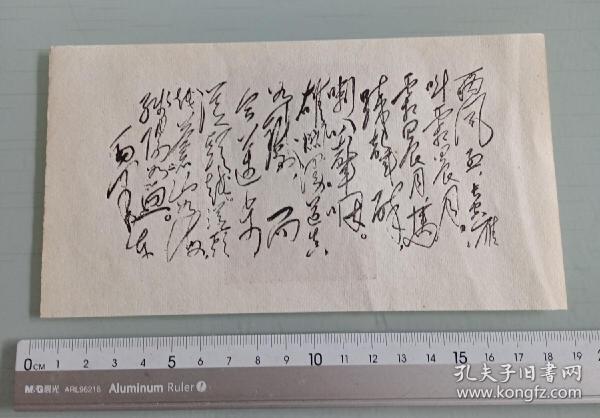 西风烈,长空雁
叫霜晨月。
霜晨月,馬
蹄声碎,
喇叭声咽。
雄关漫道真
如铁,而
今迈步
从头越。从头
越,苍山如海,
残阳如血。
0CM 1 2 3 4 5 6 7 8 9 10 11 12 13 14 15 16 17 18 19
M&G晨光 ARL96218 Aluminum Ruler
孔夫子旧书网
www.kongfz.com